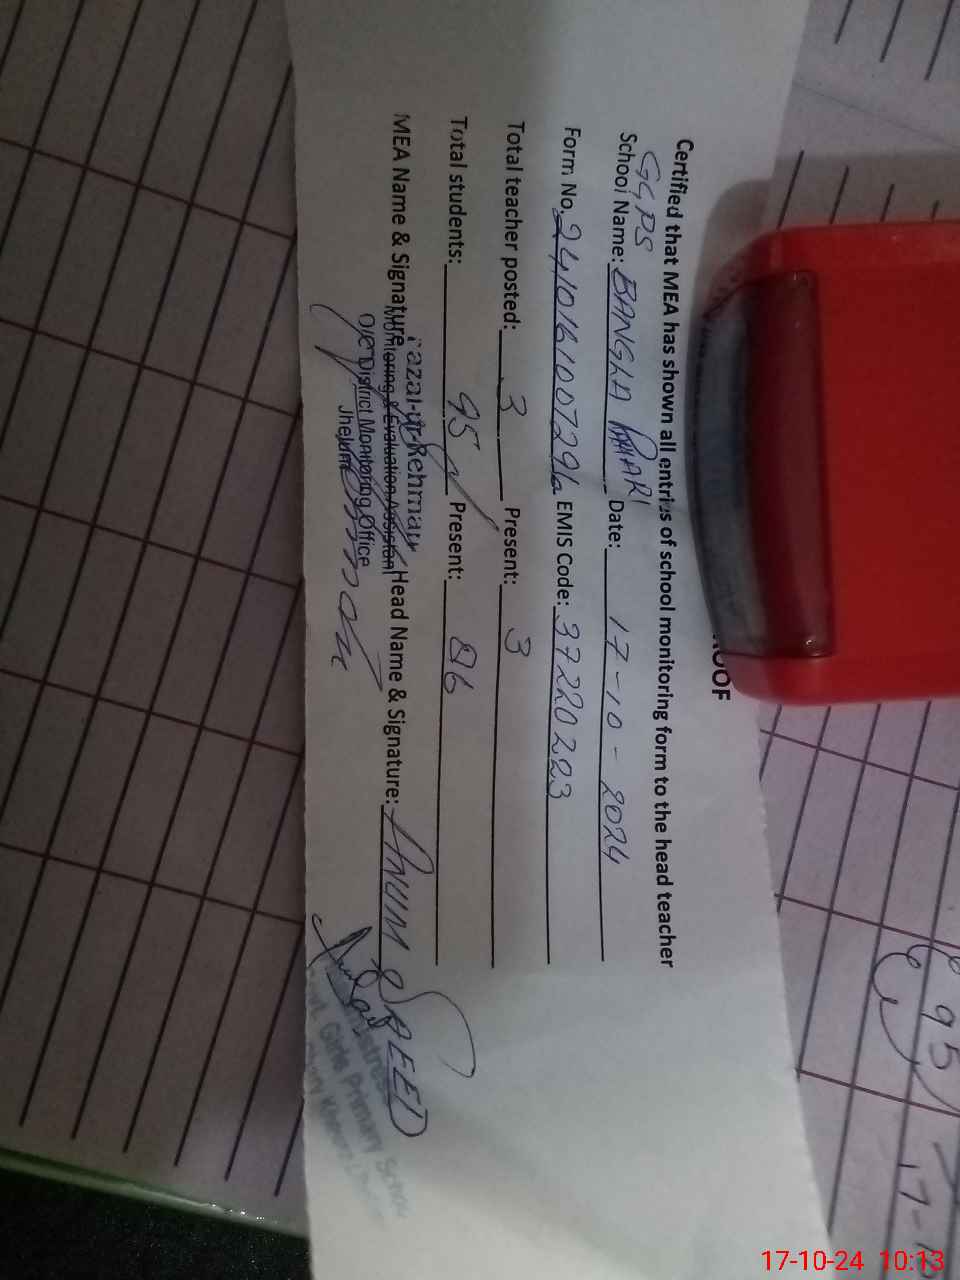 Certified that MEA has shown all entries of school monitoring form to the head teacher
GGPS
School Name: BANGLA PAHARI Date: 17-10-2024
Form No. EMIS Code: 37220223
Total teacher posted: 3 Present: 3
Total students: 95 Present: 86
MEA Name & Signature Head Name & Signature: ANUM SAEED
Fazal-ur-Rehman
Monitoring & Evaluation Assistant
O/O District Monitoring Office
Jhelum
Girls Primary School
95
17-
17-10-24 10:13